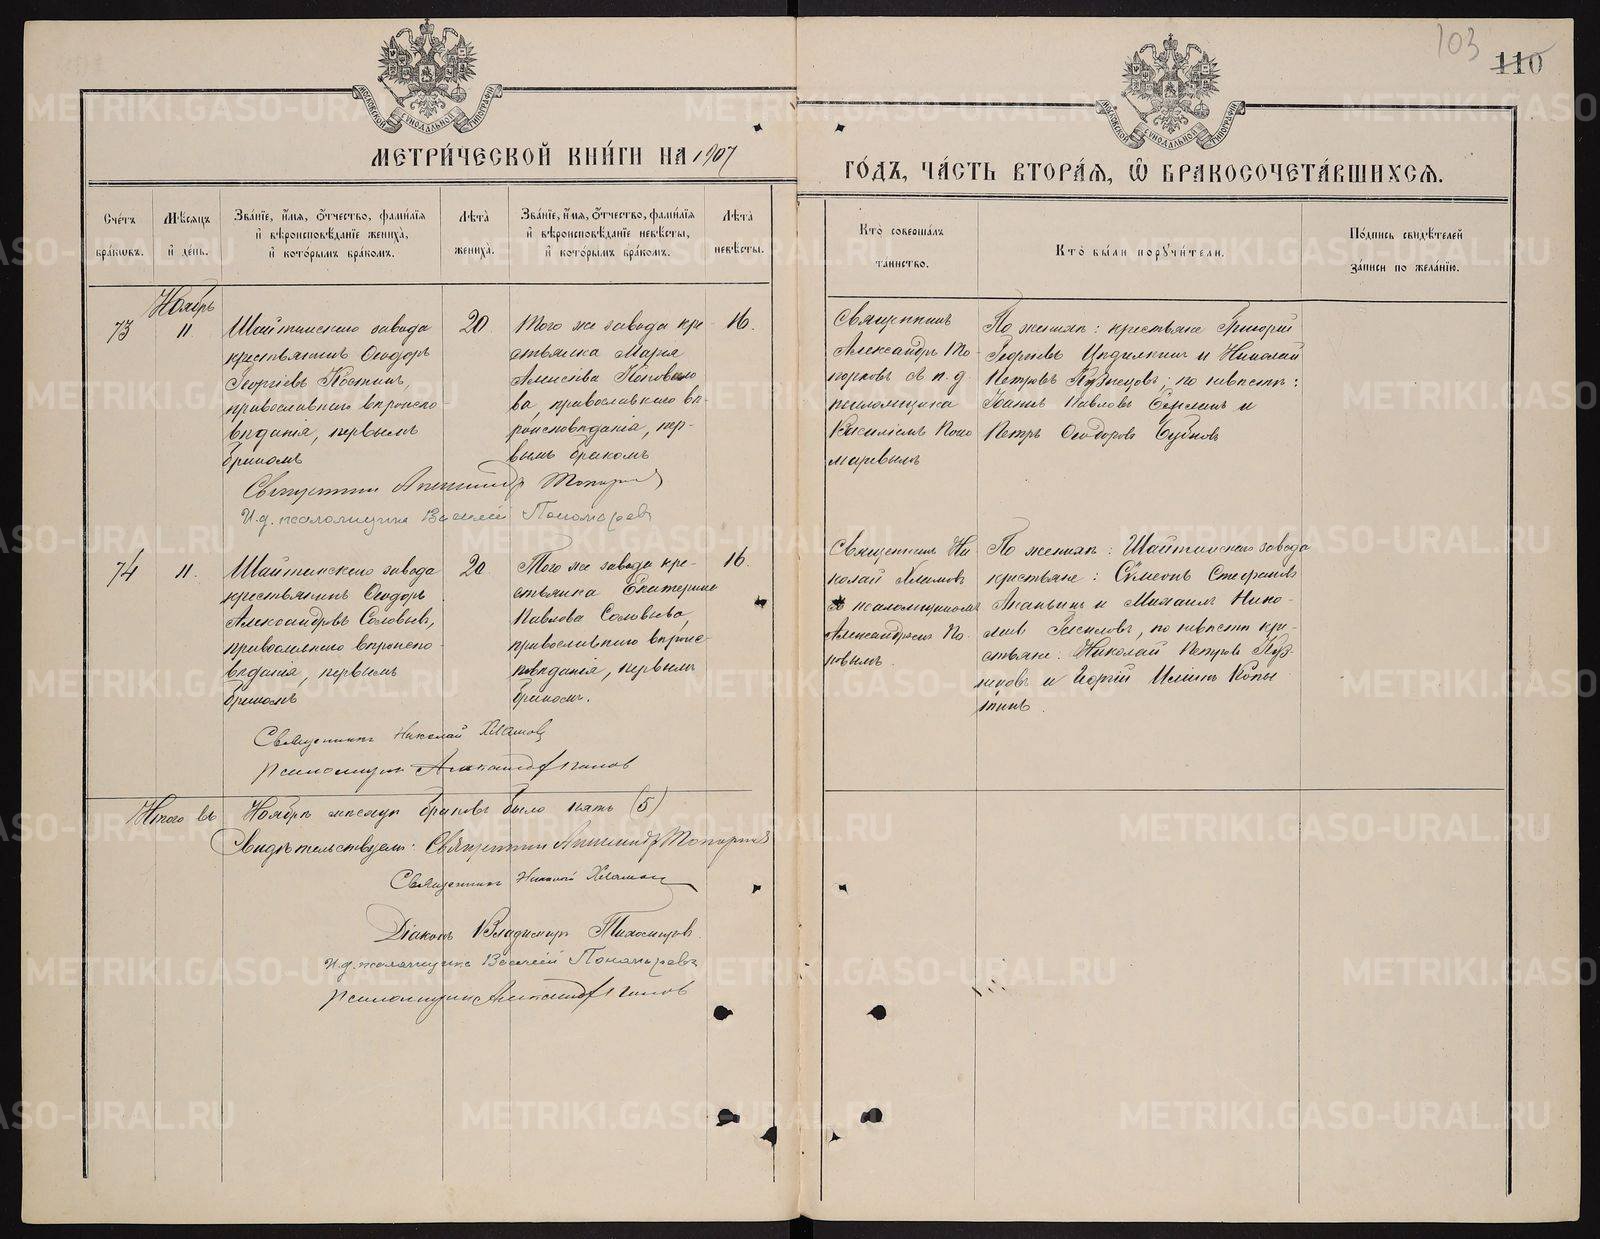 103
110
МЕТРИ́ЧЕСКОЙ КНИ́ГИ НА 1907
ГО́ДЪ, ЧА́СТЬ ВТОРА́Я, Ѽ БРАКОСОЧЕТА́ВШИХСЯ.
Сче́тъ бра́кѡвъ.
Мѣ́сяцъ и де́нь.
Зва́нїе, и́мя, ѻ́тчество, фами́лїя и вѣроисповѣ́данїе жениха̀, и кото́рымъ бра́комъ.
Лѣта̀ жениха̀.
Зва́нїе, и́мя, ѻ́тчество, фами́лїя и вѣроисповѣ́данїе невѣ́сты, и кото́рымъ бра́комъ.
Лѣта̀ невѣ́сты.
Кто̀ соверша́лъ та́инство.
Кто̀ бы́ли порꙋчи́тели.
По́дпись свидѣ́телей за́писи по жела́нїю.
Ноябрь
73
11
Шайтанскаго завода
крестьянинъ Ѳеодоръ
Георгіевъ Костинъ,
православнаго вѣроиспо-
вѣданія, первымъ
бракомъ
20
Того же завода кре-
стьянка Марія
Алексіева Коновало
ва, православнаго вѣ-
роисповѣданія, пер-
вымъ бракомъ
16.
Священникъ
Александръ То-
порковъ
псаломщика
Василіемъ Поно
маревымъ
По женихѣ: крестьяне Григорій
Георгіевъ и Николай
Петровъ Кузнецовъ; по невѣстѣ:
Іоаннъ Павловъ и
Петръ Ѳеодоровъ Бубновъ
Священникъ Александръ Топорковъ
И.д. псаломщика Василій Пономаревъ
74
11.
Шайтанскаго завода
крестьянинъ Ѳеодоръ
Александровъ Соловьевъ,
православнаго вѣроиспо-
вѣданія, первымъ
бракомъ
20
Того же завода кре-
стьянка Екатерина
Павлова Соловьева,
православнаго вѣроис-
повѣданія, первымъ
бракомъ.
16.
Священникъ Ни
колай Хламовъ
съ псаломщикомъ
Александромъ По
повымъ
По женихѣ: Шайтанскаго завода
крестьяне: Сѵмеонъ Стефановъ
Ананьинъ и Михаилъ Нико-
лаевъ по невѣстѣ кре-
стьяне: Николай Петровъ Куз
нецовъ и Георгій Ильинъ Копы
тинъ.
Священникъ Николай Хламовъ
Псаломщикъ Александръ Поповъ
Итого въ Ноябрѣ мѣсяцѣ браковъ было пять (5)
Свидѣтельствуемъ: Священникъ Александръ Топорковъ
Священникъ Николай Хламовъ
Діаконъ Владимиръ Тихомировъ
И.д. псаломщика Василій Пономаревъ
Псаломщикъ Александръ Поповъ
METRIKI.GASO-URAL.RU